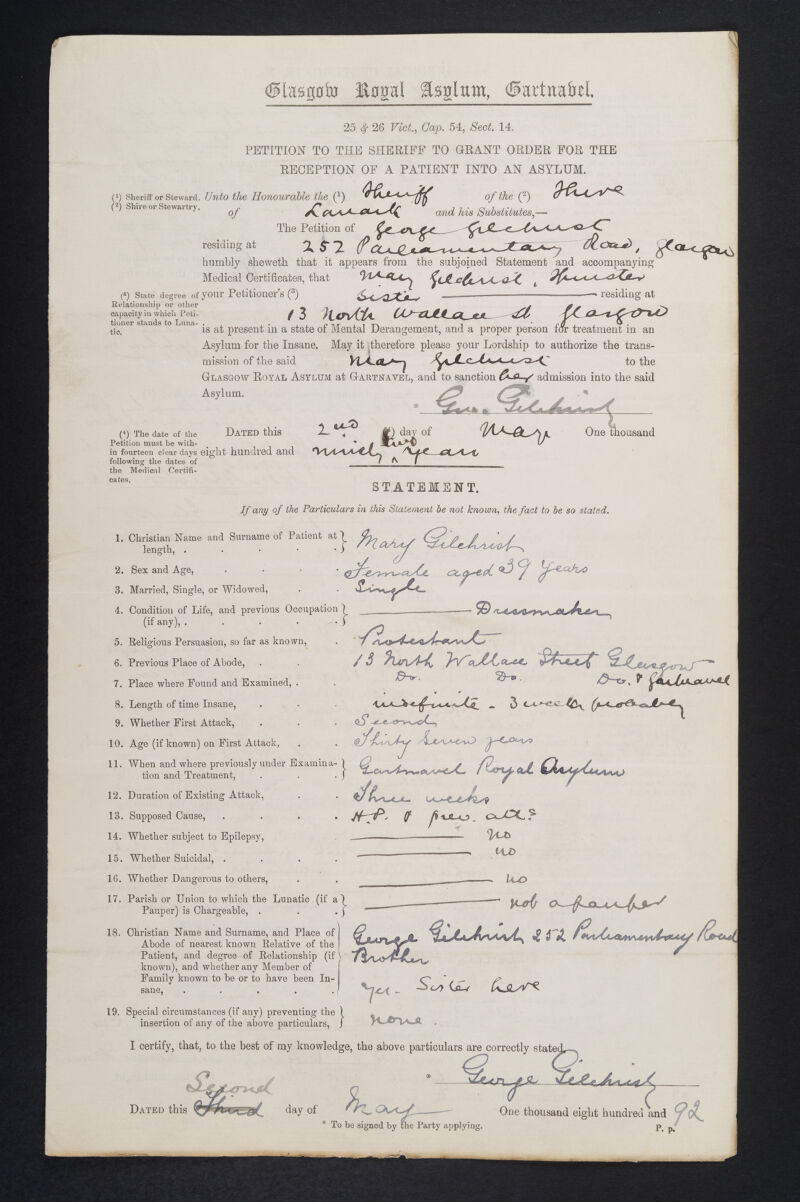 Glasgow Royal Asylum, Gartnavel.
25 & 26 Vict., Cap. 54, Sect. 14.
PETITION TO THE SHERIFF TO GRANT ORDER FOR THE
RECEPTION OF A PATIENT INTO AN ASYLUM.
(¹) Sheriff or Steward.
(²) Shire or Stewartry.
Unto the Honourable the (¹) Sheriff of the (²) Shire
of Lanark and his Substitutes,—
The Petition of George Gilchrist
residing at 252 Parliamentary Road, Glasgow
humbly sheweth that it appears from the subjoined Statement and accompanying
Medical Certificates, that Mary Gilchrist, Spinster
(³) State degree of Relationship or other capacity in which Petitioner stands to Lunatic.
your Petitioner's (³) Sister residing at
13 North Wallace St Glasgow
is at present in a state of Mental Derangement, and a proper person for treatment in an
Asylum for the Insane. May it therefore please your Lordship to authorize the trans-
mission of the said Mary Gilchrist to the
GLASGOW ROYAL ASYLUM at GARTNAVEL, and to sanction her admission into the said
Asylum.
Geo. Gilchrist
(⁴) The date of the Petition must be within fourteen clear days following the dates of the Medical Certificates.
DATED this 2nd (⁴) day of May One thousand
eight hundred and ninety two years
STATEMENT.
If any of the Particulars in this Statement be not known, the fact to be so stated.
1. Christian Name and Surname of Patient at length, . Mary Gilchrist
2. Sex and Age, Female aged 39 Years
3. Married, Single, or Widowed, Single
4. Condition of Life, and previous Occupation (if any), . Dressmaker
5. Religious Persuasion, so far as known, Protestant
6. Previous Place of Abode, 13 North Wallace Street Glasgow
7. Place where Found and Examined, . Do. Do. Do. & Gartnavel
8. Length of time Insane, indefinite - 3 weeks probably
9. Whether First Attack, Second
10. Age (if known) on First Attack, Thirty Seven years
11. When and where previously under Examination and Treatment, Gartnavel Royal Asylum
12. Duration of Existing Attack, Three weeks
13. Supposed Cause, H.P. & prev. att?
14. Whether subject to Epilepsy, no
15. Whether Suicidal, . no
16. Whether Dangerous to others, no
17. Parish or Union to which the Lunatic (if a Pauper) is Chargeable, . not a pauper
18. Christian Name and Surname, and Place of Abode of nearest known Relative of the Patient, and degree of Relationship (if known), and whether any Member of Family known to be or to have been Insane, George Gilchrist 252 Parliamentary Road
Brother
yes - Sister here
19. Special circumstances (if any) preventing the insertion of any of the above particulars, none.
I certify, that, to the best of my knowledge, the above particulars are correctly stated,
* George Gilchrist
Second
DATED this Third day of May One thousand eight hundred and 92
* To be signed by the Party applying.
P. p.